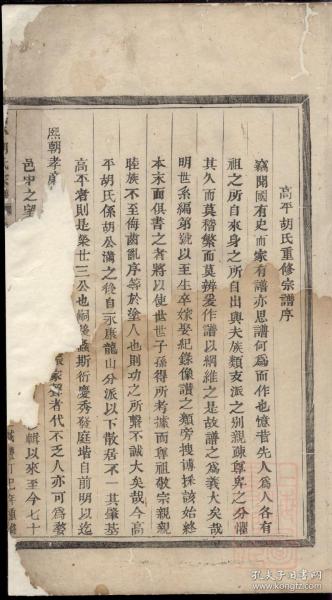 高平胡氏重修宗譜序
竊聞國有史而家有譜亦思譜何爲而作也憶昔先人爲人各有
祖之所自來身之所自出與夫族類支派之別親疎尊卑之分懼
其久而莫稽繁而莫辨爰作譜以綱維之是故譜之爲義大矣哉
明世系編第號以至生卒嫁娶紀錄像讚之類旁搜博採該始終
本末而俱書之者將以使世世子孫得所考據而尊祖敬宗親親
睦族不至侮齒亂序等於塗人也則功之所繫不誠大矣哉今高
平胡氏係胡公滿之後自永康龍山分派以下散居不一其肇基
高平者則是榮廿三公也嗣後螽斯衍慶秀發庭堦自前明以迄
熙朝孝
者代不乏人亦可爲婺
邑中之望
輯以來至今七十
咸豐丁巳年重修
孔夫子旧书网